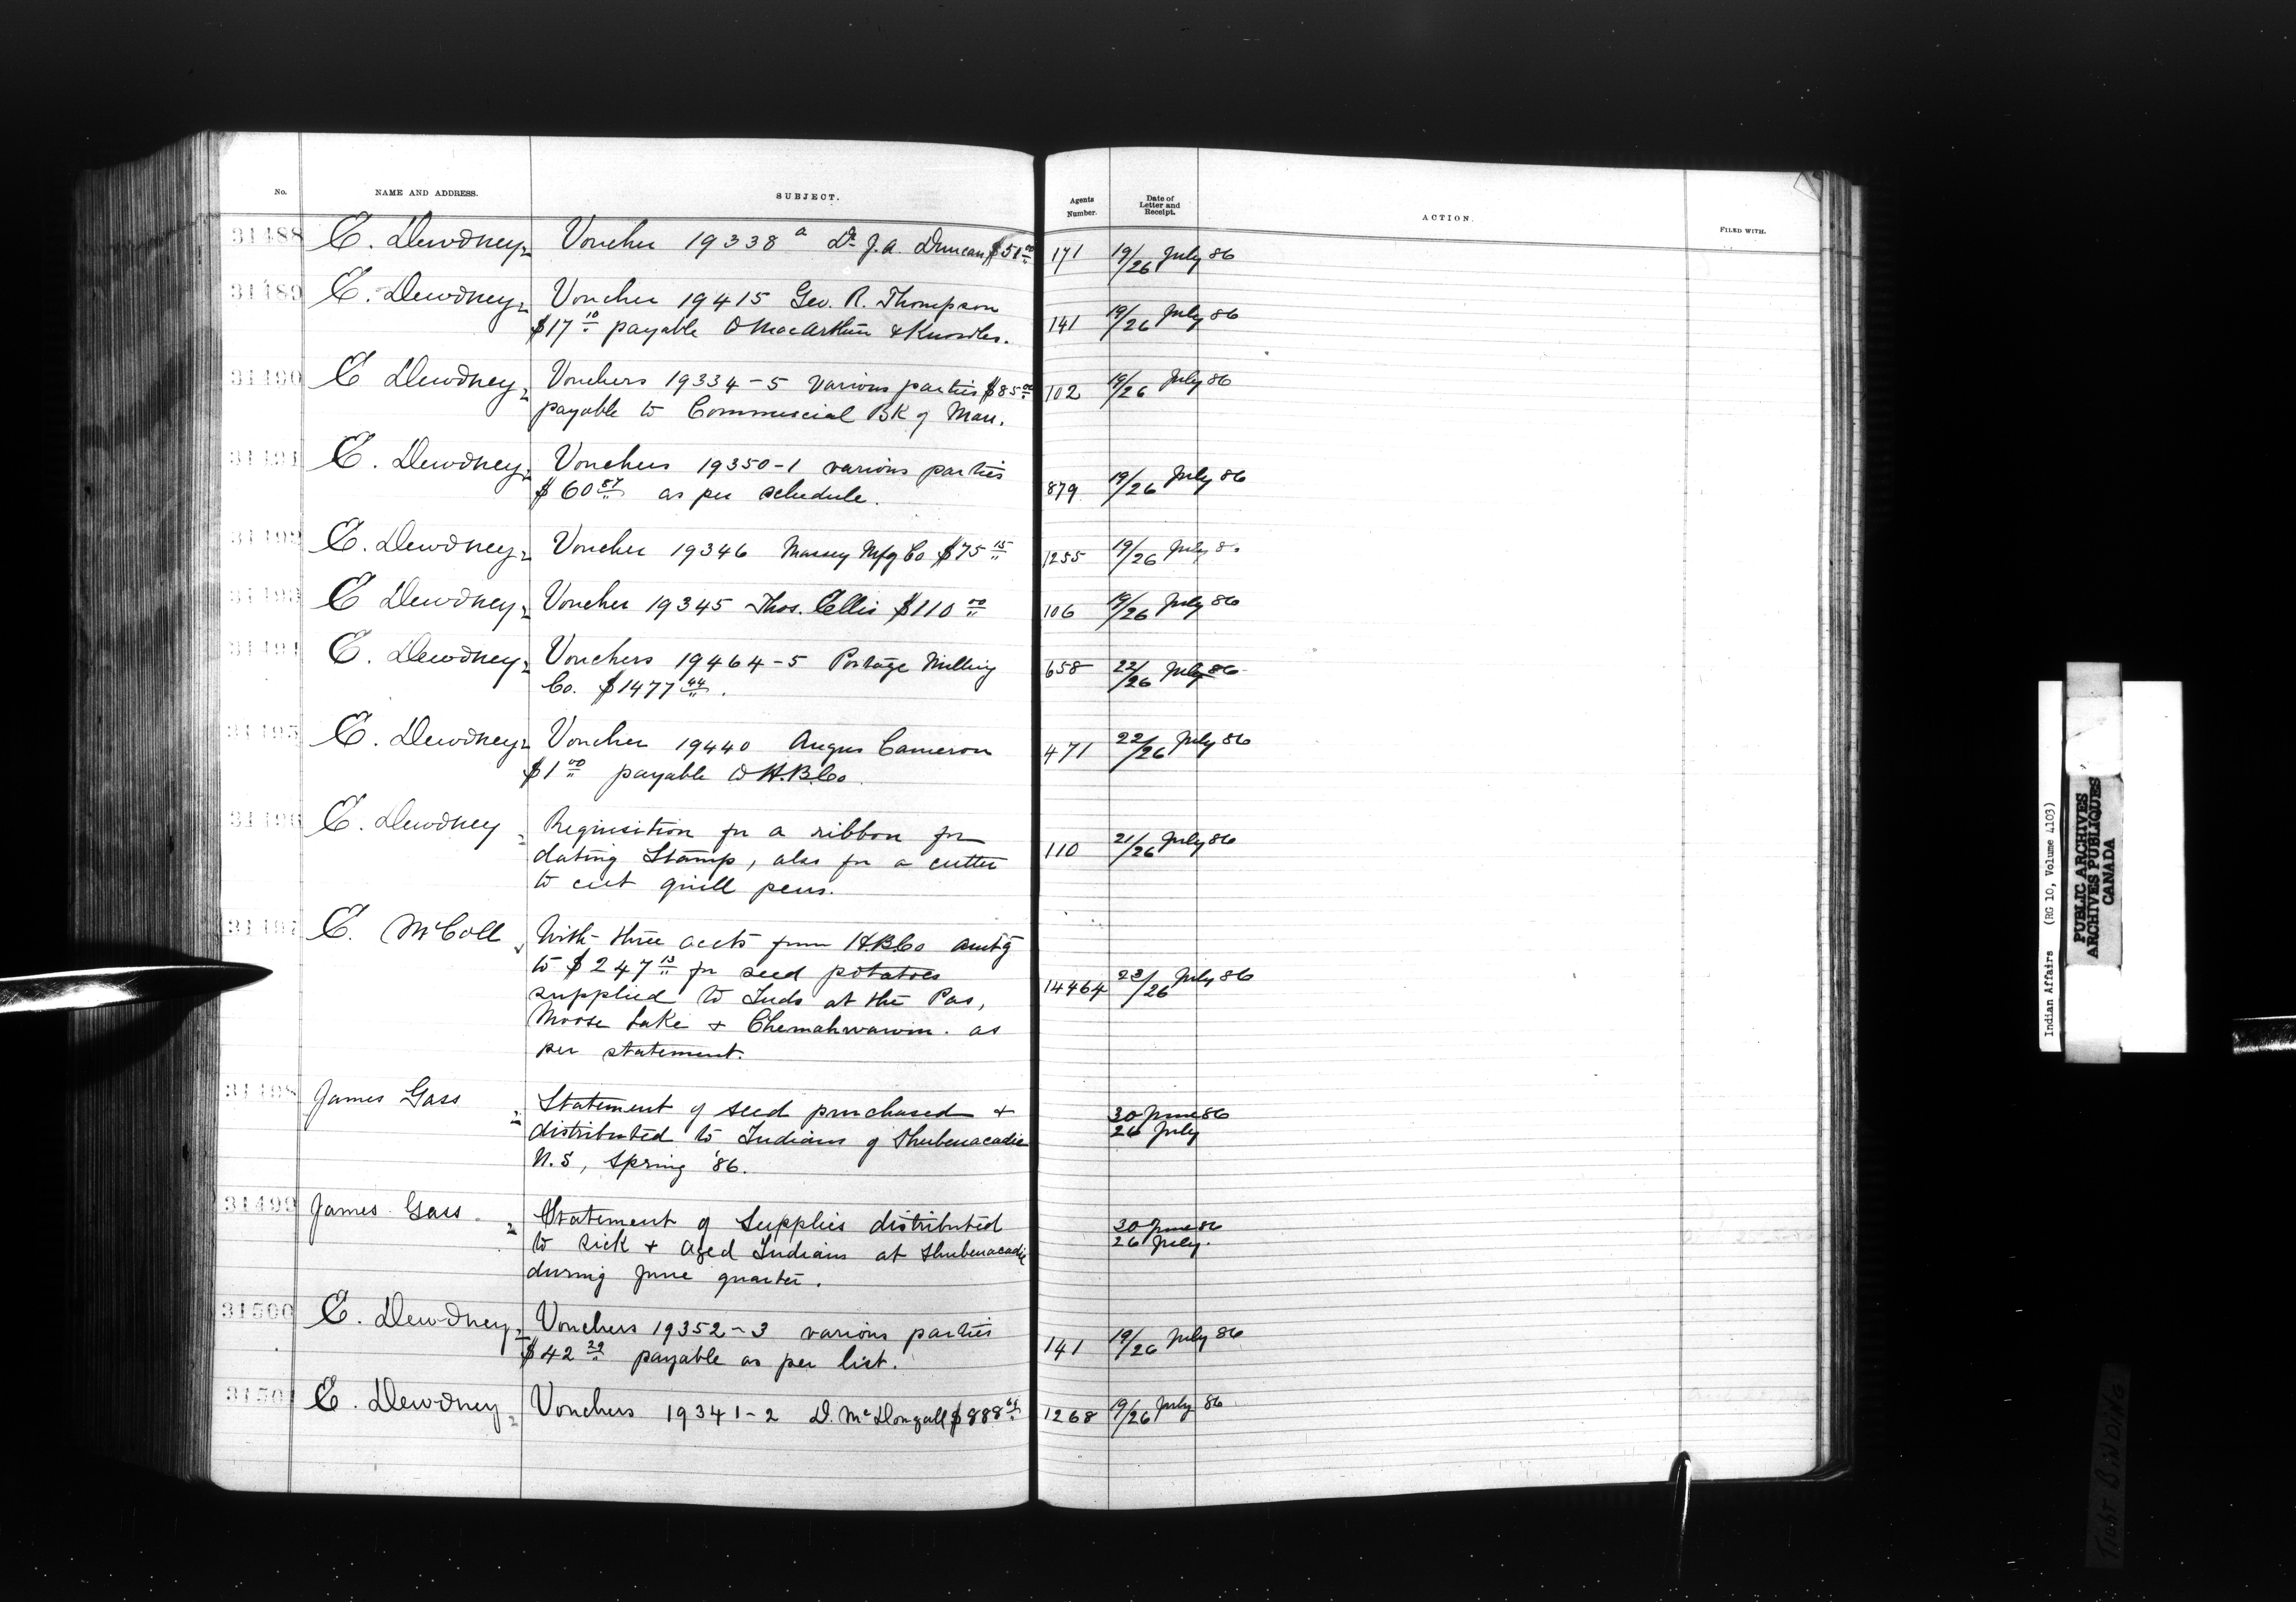 No. NAME AND ADDRESS. SUBJECT. Agents Number. Date of Letter and Receipt. ACTION. FILED WITH.
31488 E. Dewdney Voucher 19338 a Dr. J. A. Duncan $51 00 171 19/26 July 86
31489 E. Dewdney Voucher 19415 Geo. R. Thompson 141 19/26 July 86
$17 10 payable to MacArthur & Knowles.
31490 E Dewdney Vouchers 19334-5 various parties $85 00 102 19/26 July 86
payable to Commercial Bk of Man.
31491 E. Dewdney Vouchers 19350-1 various parties 879 19/26 July 86
$60 87 as per schedule.
31492 E. Dewdney Voucher 19346 Massey Mfg Co $75 15 1255 19/26 July 8
31493 E Dewdney Voucher 19345 Thos. Ellis $110 00 106 19/26 July 86
31494 E. Dewdney Vouchers 19464-5 Portage Milling 658 22/26 July 86
Co. $1477 44.
31495 E. Dewdney Voucher 19440 Angus Cameron 471 22/26 July 86
$1 00 payable to H.B.Co.
31496 E. Dewdney Requisition for a ribbon for 110 21/26 July 86
dating Stamp, also for a cutter
to cut quill pens.
31497 E. McColl With three accts from H.B.Co amtg 14464 23/26 July 86
to $247 13 for seed potatoes
supplied to Inds at the Pas,
Moose Lake & Chemahwawin. as
per statement.
31498 James Gass Statement of seed purchased & 30 June 86
distributed to Indians of Shubenacadie 26 July
N.S, Spring '86.
31499 James Gass. Statement of Supplies distributed 30 June 86
to sick & aged Indians at Shubenacadie 26 July.
during June quarter.
31500 E. Dewdney Vouchers 19352-3 various parties 141 19/26 July 86
$42 39 payable as per list.
31501 E. Dewdney Vouchers 19341-2 D. McDougall $888 1268 19/26 July 86
Indian Affairs (RG 10, Volume 4103)
PUBLIC ARCHIVES
ARCHIVES PUBLIQUES
CANADA
TIGHT BINDING